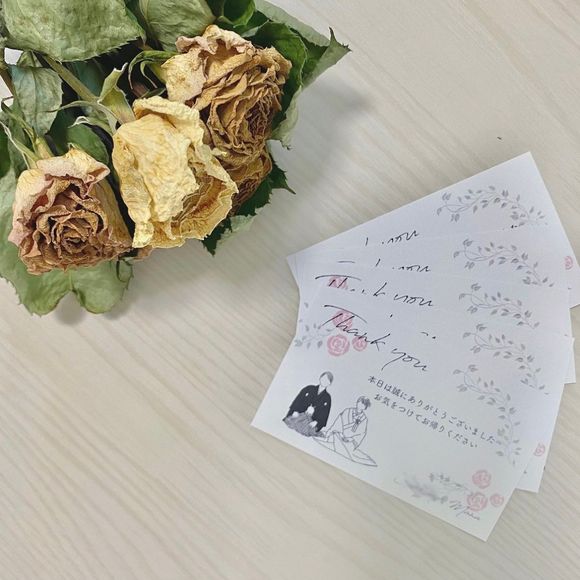 you
you
Thank you
Thank you
本日は誠にありがとうございました
お気をつけてお帰りください